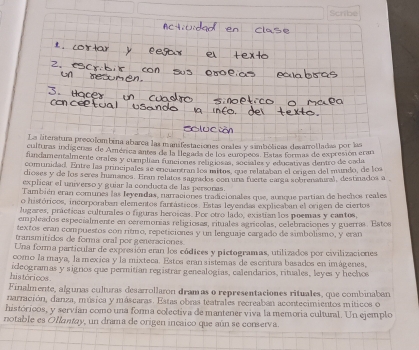 Scribe
Actividad en clase
1. cortar y pegar el texto
2. escribir con sus propias palabras
un resumen.
3. Hacer un cuadro sinoptico o mapa
conceptual usando la info. del texto.
solución
La literatura precolombina abarca las manifestaciones orales y simbólicas desarrolladas por las
culturas indígenas de América antes de la llegada de los europeos. Estas formas de expresión eran
fundamentalmente orales y cumplían funciones religiosas, sociales y educativas dentro de cada
comunidad. Entre las principales se encuentran los mitos, que relataban el origen del mundo, de los
dioses y de los seres humanos. Eran relatos sagrados con una fuerte carga sobrenatural, destinados a
explicar el universo y guiar la conducta de las personas.
También eran comunes las leyendas, narraciones tradicionales que, aunque partían de hechos reales
o históricos, incorporaban elementos fantásticos. Estas leyendas explicaban el origen de ciertos
lugares, prácticas culturales o figuras heroicas. Por otro lado, existían los poemas y cantos,
empleados especialmente en ceremonias religiosas, rituales agrícolas, celebraciones y guerras. Estos
textos eran compuestos con ritmo, repeticiones y un lenguaje cargado de simbolismo, y eran
transmitidos de forma oral por generaciones.
Una forma particular de expresión eran los códices y pictogramas, utilizados por civilizaciones
como la maya, la mexica y la mixteca. Estos eran sistemas de escritura basados en imágenes,
ideogramas y signos que permitían registrar genealogías, calendarios, rituales, leyes y hechos
históricos.
Finalmente, algunas culturas desarrollaron dramas o representaciones rituales, que combinaban
narración, danza, música y máscaras. Estas obras teatrales recreaban acontecimientos míticos o
históricos, y servían como una forma colectiva de mantener viva la memoria cultural. Un ejemplo
notable es Ollantay, un drama de origen incaico que aún se conserva.